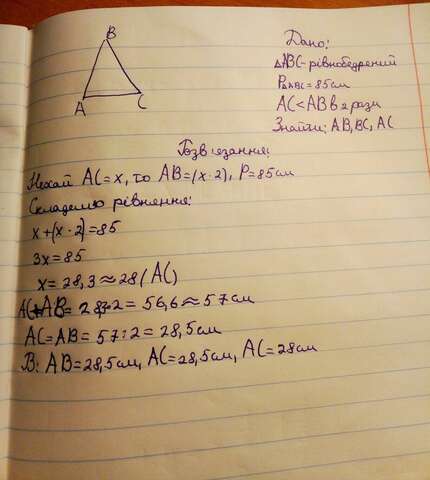 B
A
C
Дано:
△ABC - рівнобедрений
P△ABC = 85см
AC < AB в 2 рази
Знайти: AB, BC, AC
Розв'язання:
Нехай AC = x, то AB = (x · 2), P = 85см
Складемо рівняння:
x + (x · 2) = 85
3x = 85
x = 28,3 ≈ 28 (AC)
AB = 28,3 · 2 = 56,6 ≈ 57см
AC = AB = 57 : 2 = 28,5см
В: AB = 28,5см, AC = 28,5см, AC = 28см